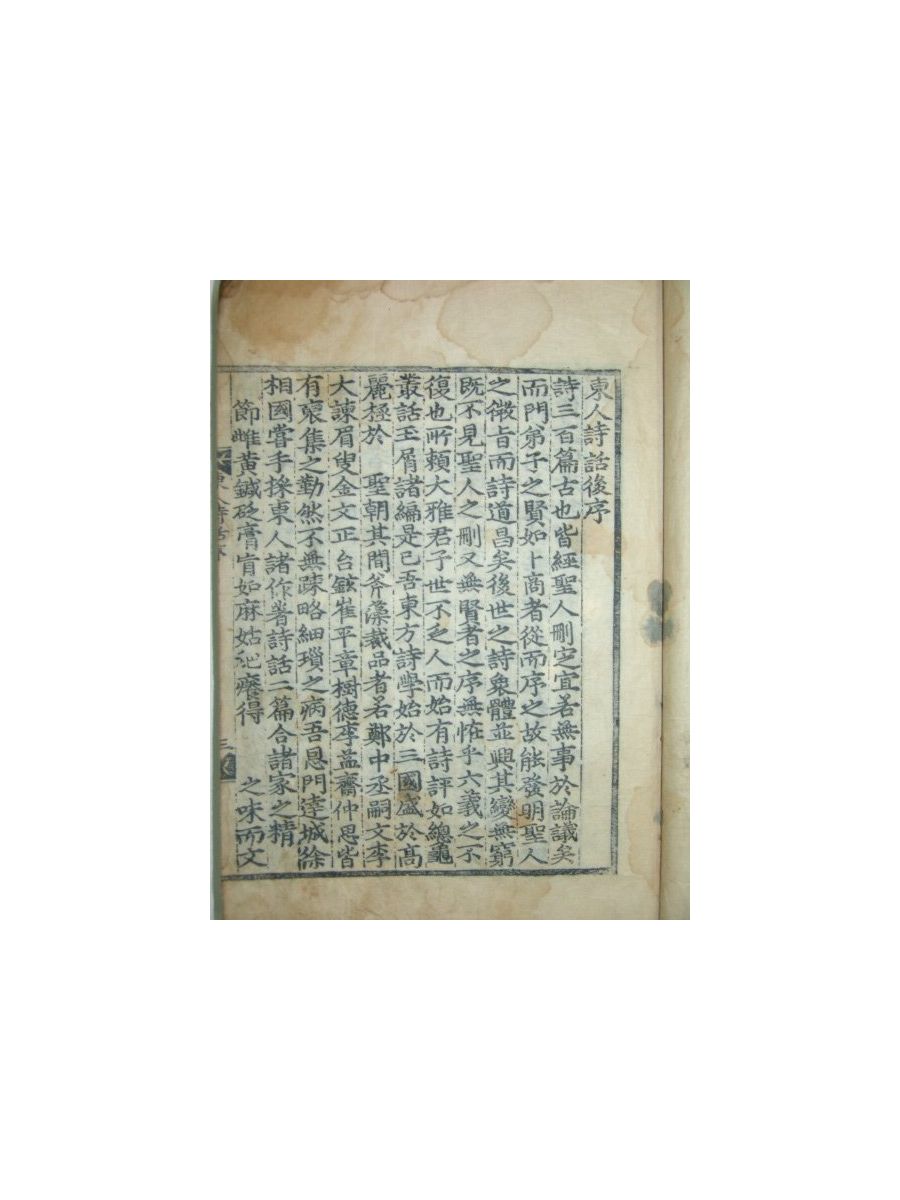 東人詩話後序
詩三百篇古也皆經聖人刪定宜若無事於論議矣
而門弟子之賢如卜商者從而序之故能發明聖人
之微旨而詩道昌矣後世之詩衆體並興其變無窮
既不見聖人之刪又無賢者之序無恠乎六義之不
復也所賴大雅君子世不乏人而始有詩評如總龜
叢話玉屑諸編是已吾東方詩學始於三國盛於高
麗極於 聖朝其間斧藻裁品者若鄭中丞嗣文李
大諫眉叟金文正台鉉崔平章樹德李益齋仲思皆
有裒集之勤然不無踈略細瑣之病吾恩門達城徐
相國嘗手採東人諸作著詩話二篇合諸家之精
節雌黃鍼砭膏肓如麻姑 癢得 之味而文
東人詩話 三